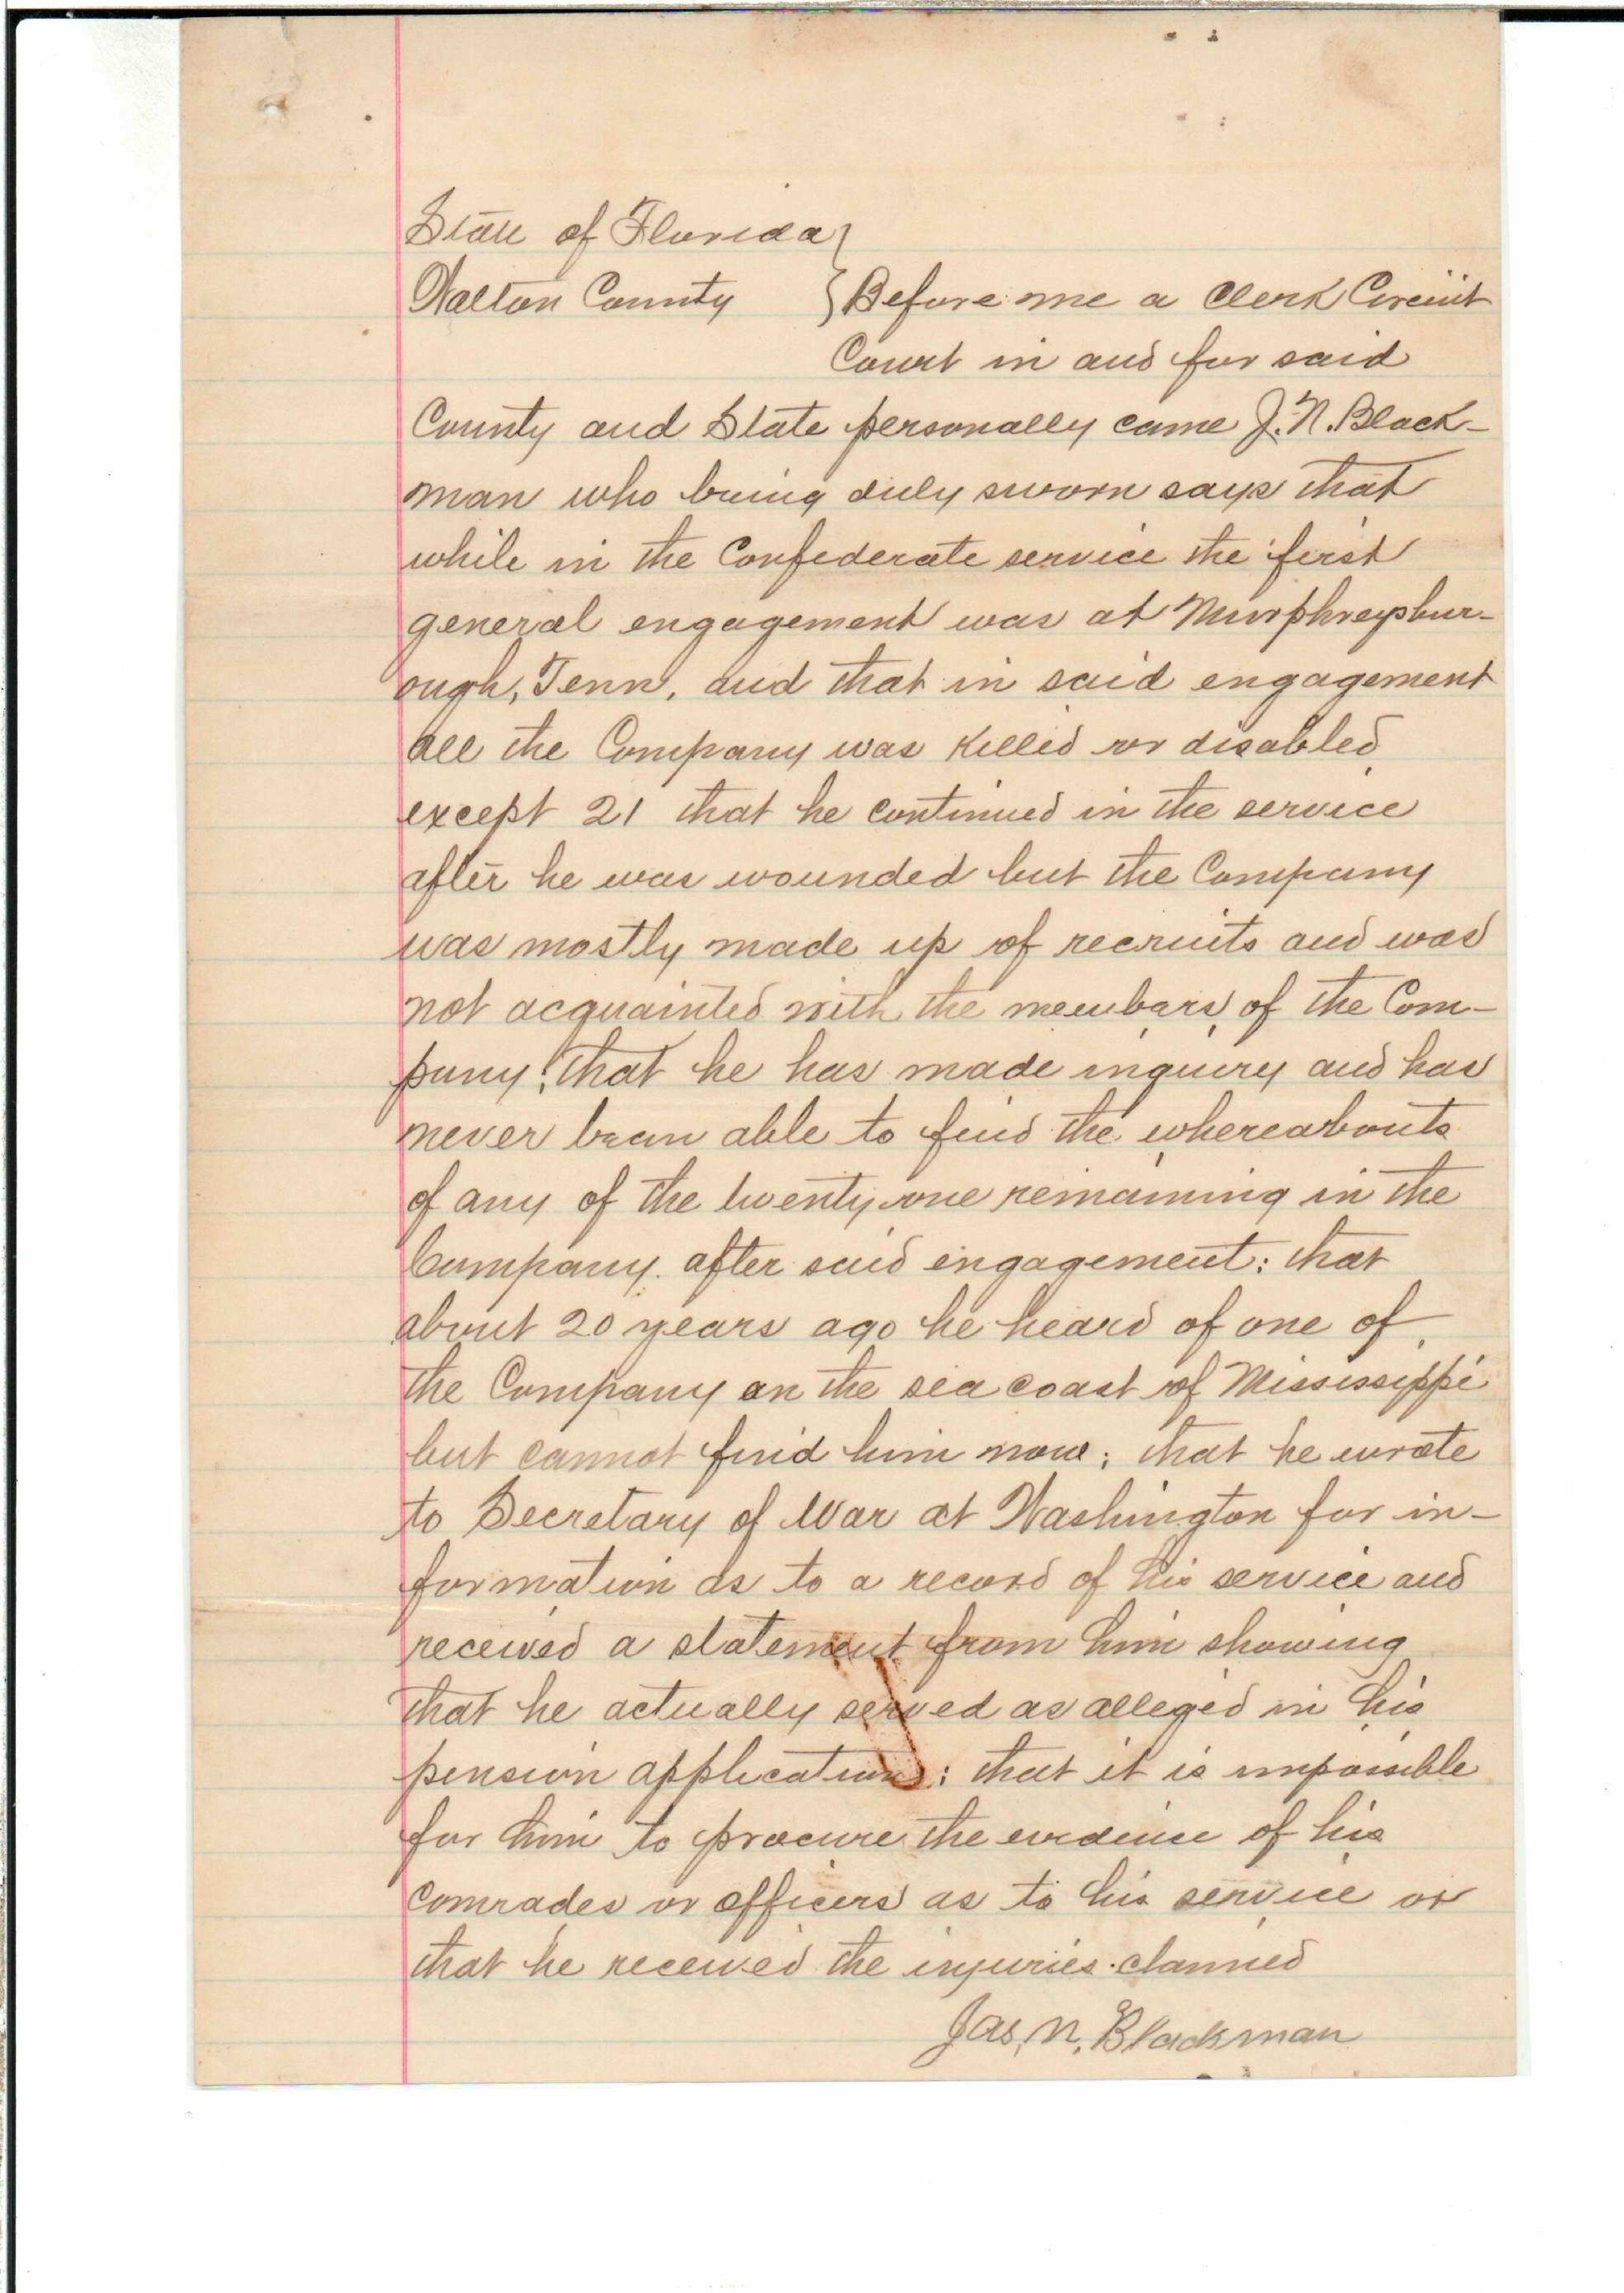 State of Florida }
Walton County } Before me a Clerk Circuit
Court in and for said
County and State personally came J. N. Black-
man who being duly sworn says that
while in the Confederate service the first
general engagement was at Murphreysbur-
ough, Tenn, and that in said engagement
all the Company was killed or disabled
except 21 that he continued in the service
after he was wounded but the Company
was mostly made up of recruits and was
not acquainted with the members of the Com-
pany; that he has made inquiry and has
never been able to find the whereabouts
of any of the twenty one remaining in the
Company after said engagement: that
about 20 years ago he heard of one of
the Company on the sea coast of Mississippi
but cannot find him now; that he wrote
to Secretary of War at Washington for in-
formation as to a record of his service and
received a statement from him showing
that he actually served as alleged in his
pension application: that it is impossible
for him to procure the evidence of his
comrades or officers as to his service or
that he received the injuries claimed
Jas. N. Blackman